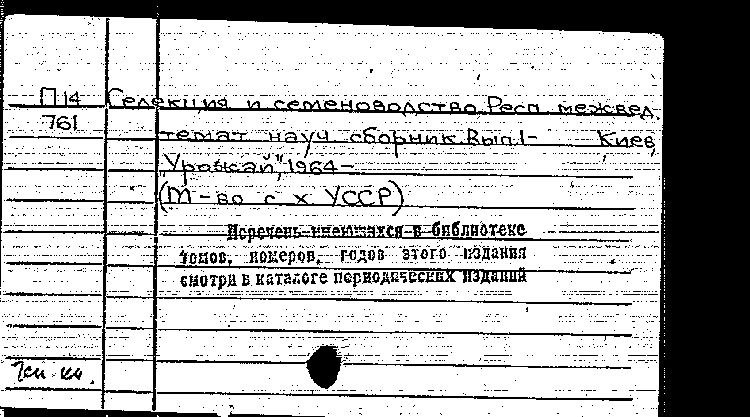 П14 Селекция и семеноводство. Респ. межвед.
761 темат науч сборник. Вып. 1- Киев,
"Урожай", 1964-
(М-во с х УССР)
Перечень имеющихся в библиотеке
томов, номеров, годов этого издания
смотри в каталоге периодических изданий